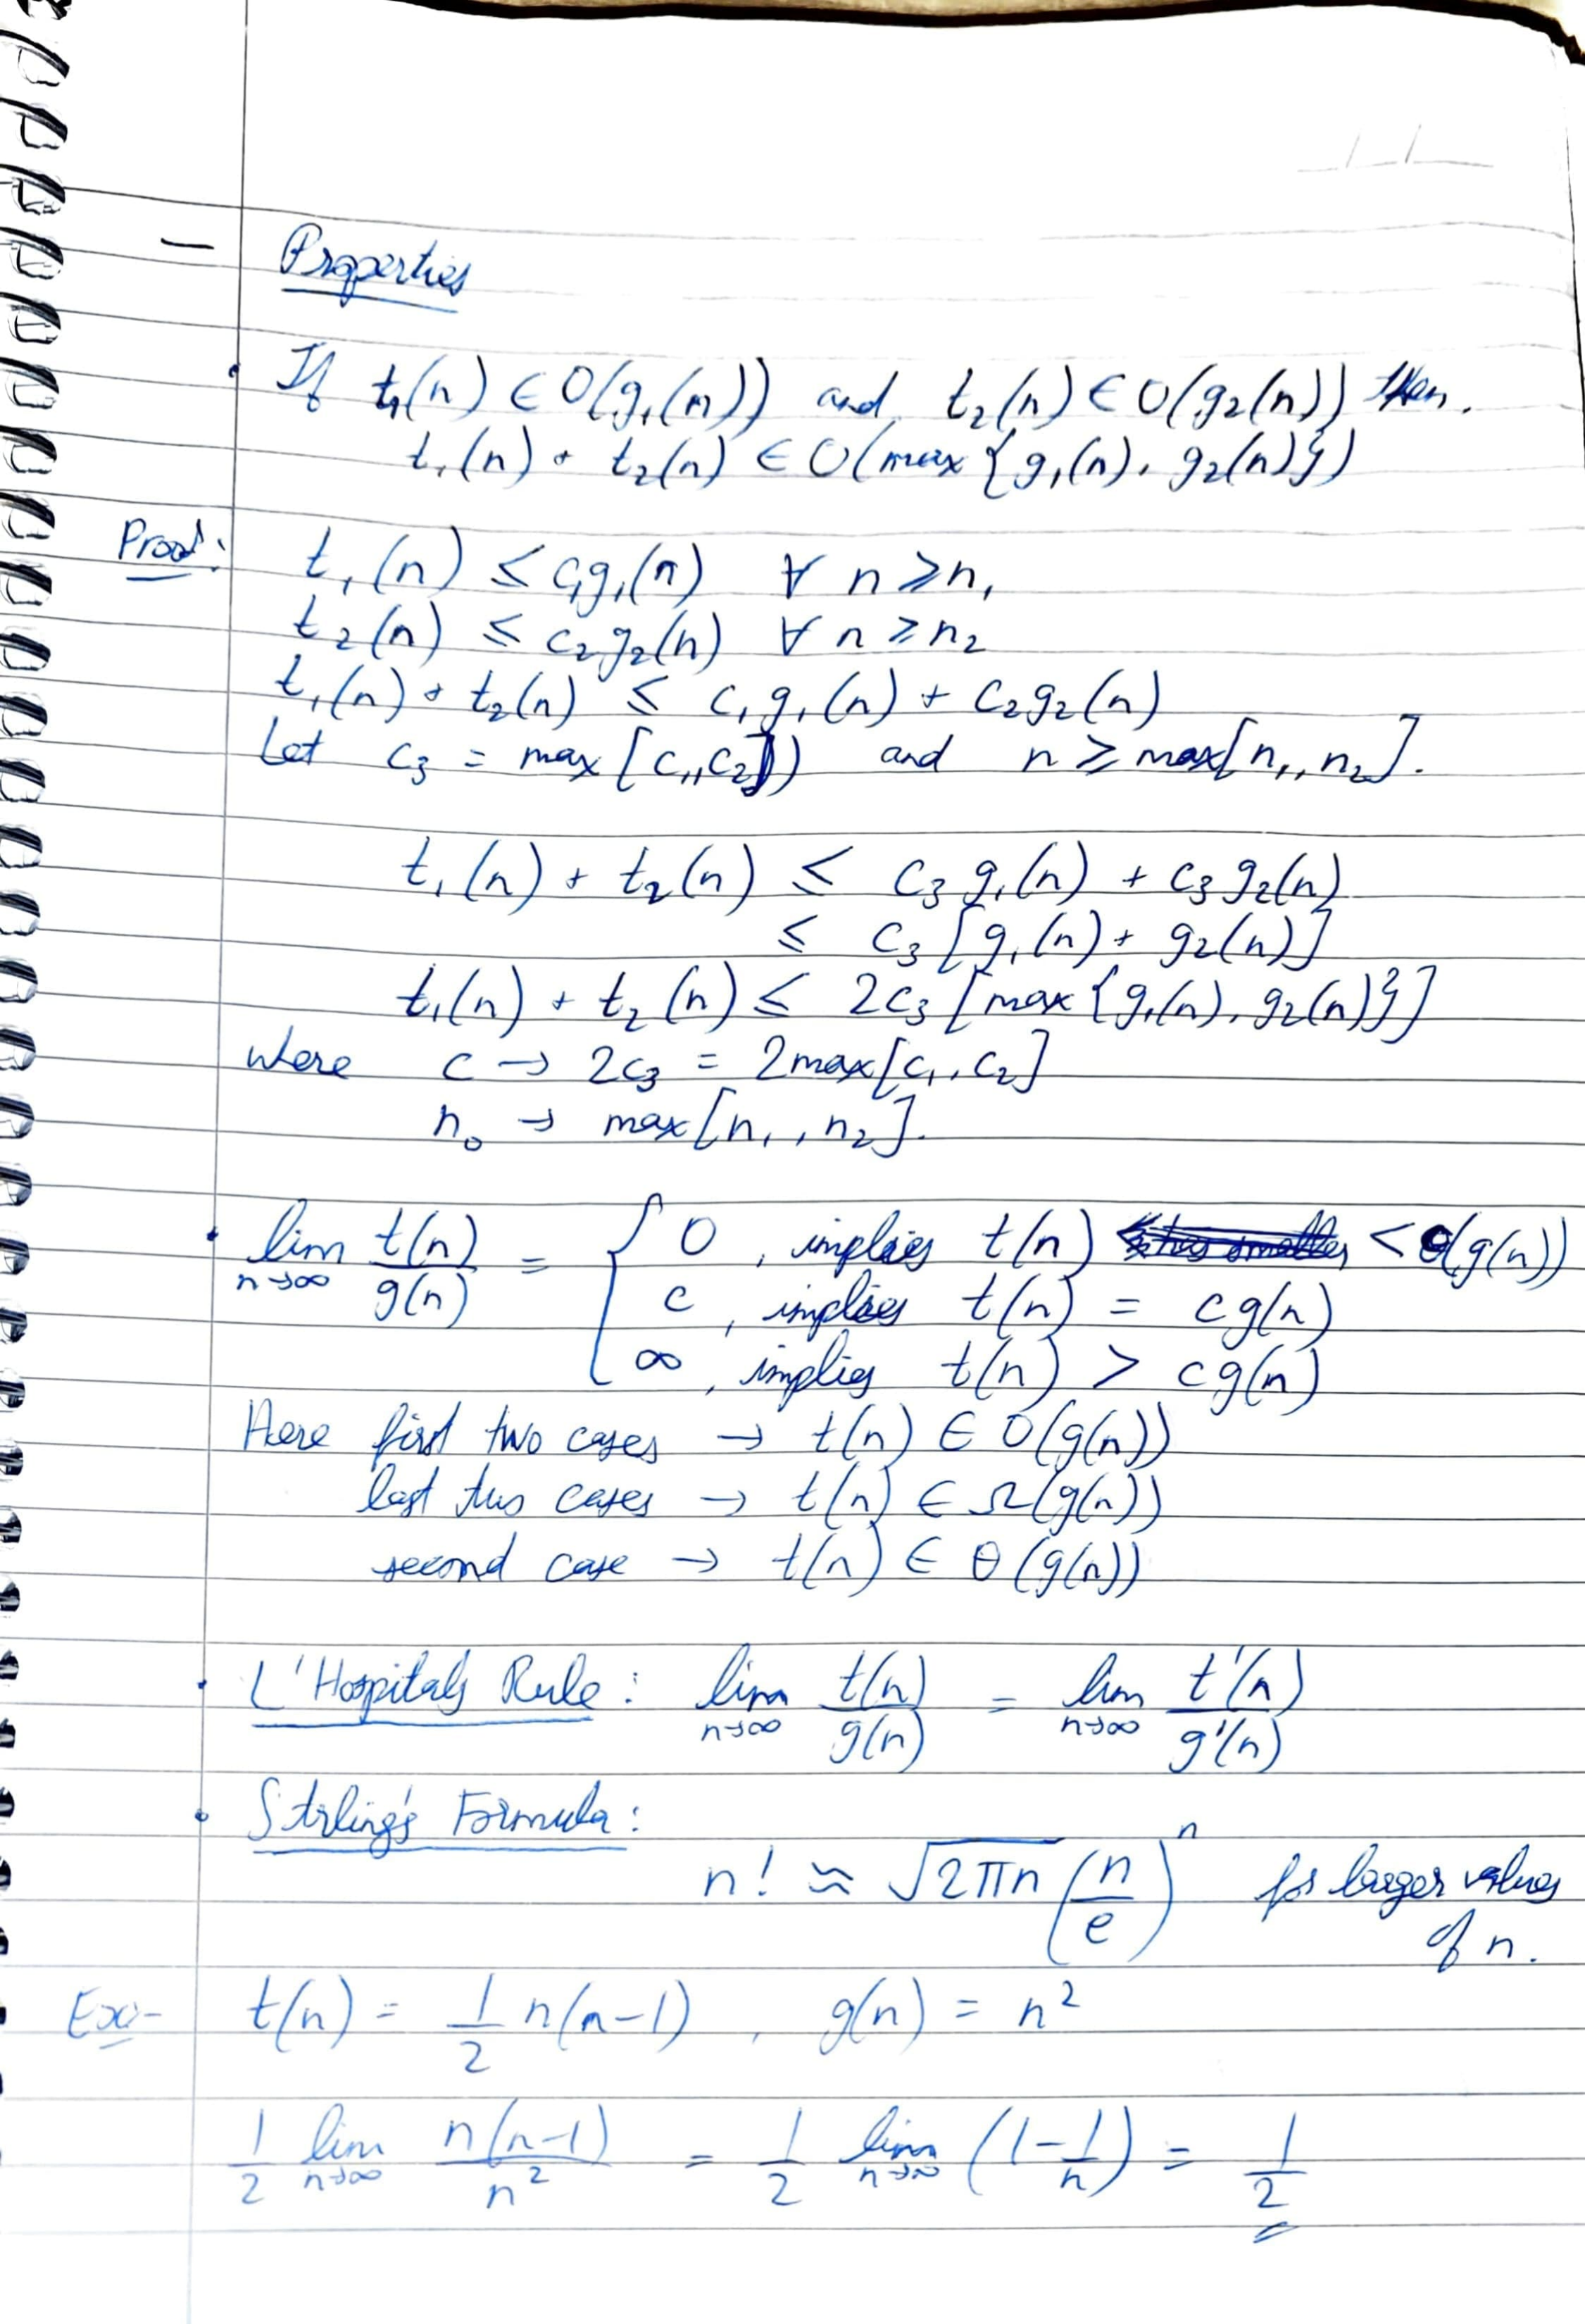 – Properties
• If t₁(n) ∈ O(g₁(n)) and t₂(n) ∈ O(g₂(n)) then.
t₁(n) + t₂(n) ∈ O(max {g₁(n), g₂(n)})
Proof: t₁(n) ≤ c₁g₁(n) ∀ n ≥ n₁
t₂(n) ≤ c₂g₂(n) ∀ n ≥ n₂
t₁(n) + t₂(n) ≤ c₁g₁(n) + c₂g₂(n)
Let c₃ = max [c₁, c₂]) and n ≥ max[n₁, n₂].
t₁(n) + t₂(n) ≤ c₃ g₁(n) + c₃ g₂(n)
≤ c₃ [g₁(n) + g₂(n)]
t₁(n) + t₂(n) ≤ 2c₃ [max {g₁(n), g₂(n)}]
where c → 2c₃ = 2max[c₁, c₂]
n₀ → max[n₁, n₂].
• lim n→∞ t(n)/g(n) = { 0, implies t(n) < O(g(n))
c, implies t(n) = cg(n)
∞, implies t(n) > cg(n)
Here first two cases → t(n) ∈ O(g(n))
last two cases → t(n) ∈ Ω(g(n))
second case → t(n) ∈ θ(g(n))
• L'Hospitals Rule: lim n→∞ t(n)/g(n) = lim n→∞ t'(n)/g'(n)
• Stirling's Formula:
n! ≈ √2πn (n/e)ⁿ for larger values
of n.
Ex:- t(n) = 1/2 n(n-1), g(n) = n²
1/2 lim n→∞ n(n-1)/n² = 1/2 lim n→∞ (1 - 1/n) = 1/2